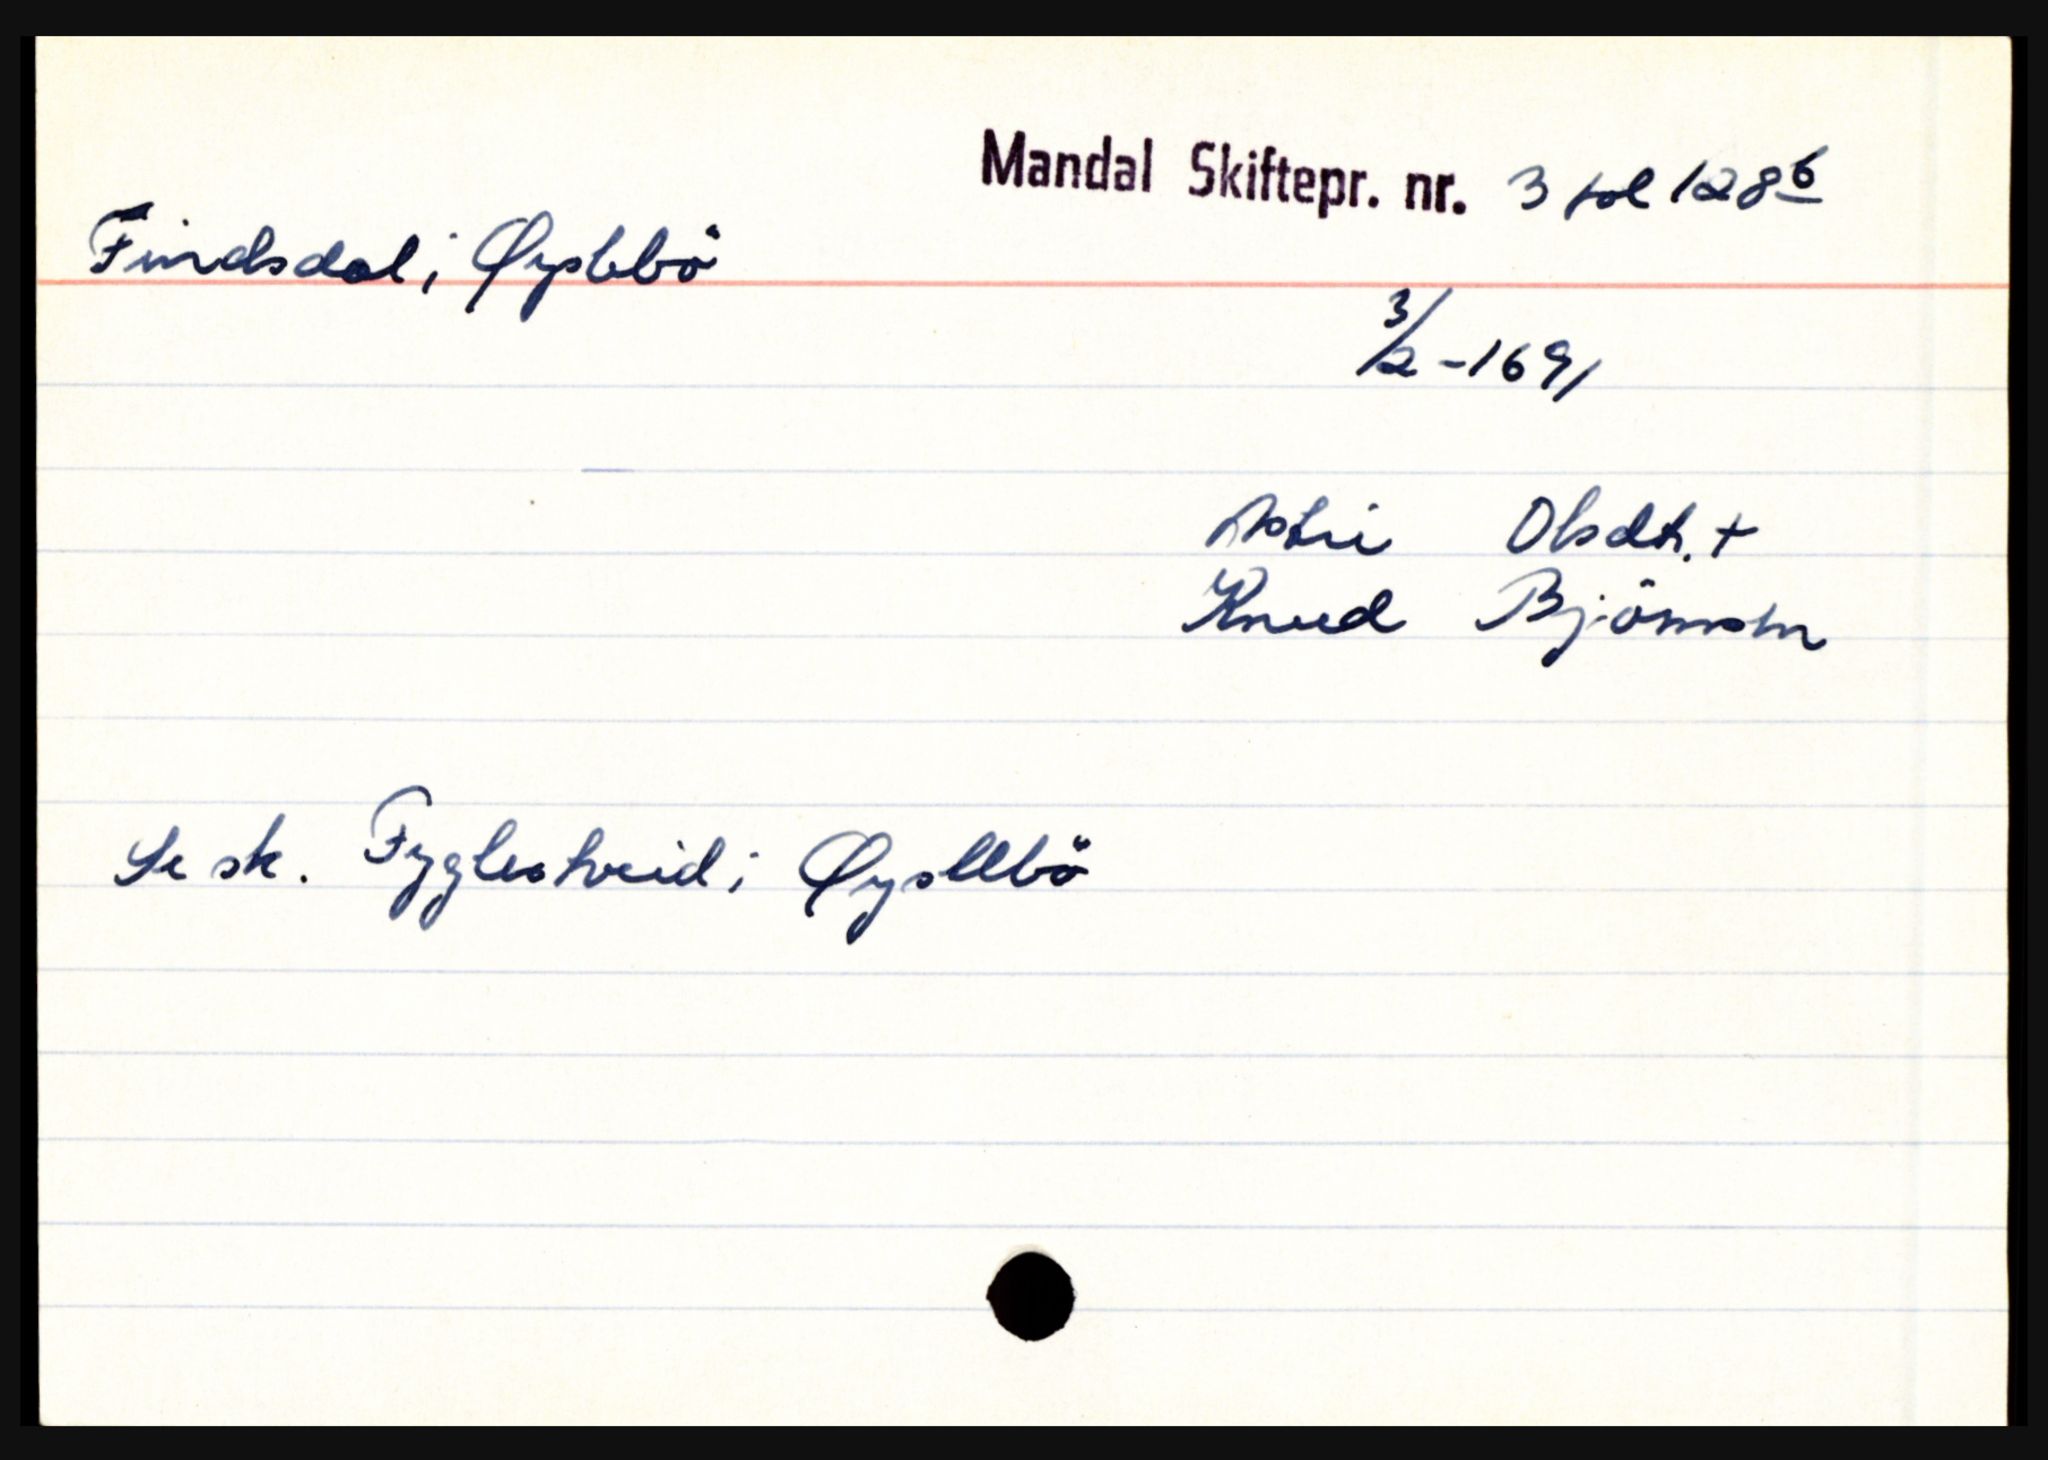 Mandal Skiftepr. nr. 3 fol 128 b
Findsdal i Øyslebö
3/2 - 1691
Astri Olsdtr. +
Knud Björnsen
Se sk. Fyglestveid i Øyslebö